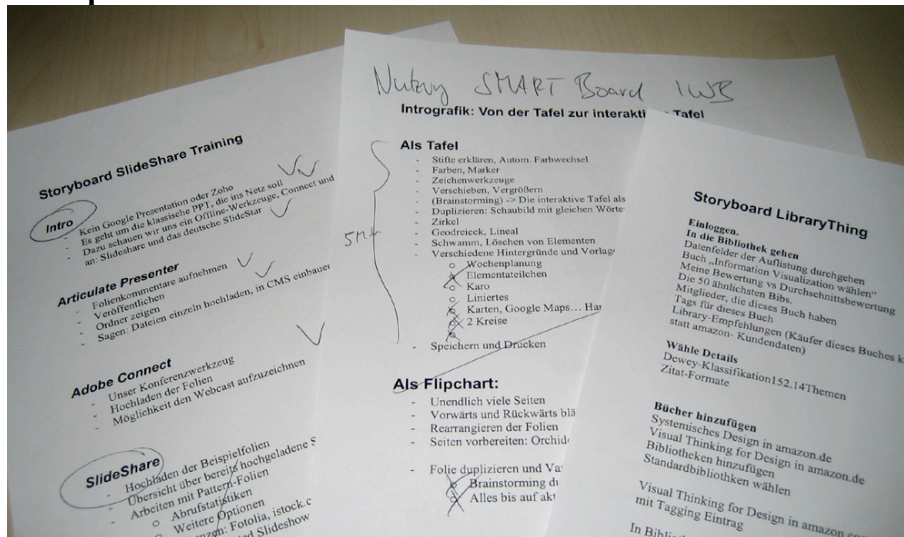 Storyboard SlideShare Training
Intro
- Kein Google Presentation oder Zoho
- Es geht um die klassische PPT, die ins Netz soll
- Dazu schauen wir uns die Offline-Werkzeuge, Connect und
an: Slideshare und das deutsche SlideStar
Articulate Presenter
- Folienkommentare aufnehmen
- Veröffentlichen
- Ordner zeigen
- Sagen: Dateien einzeln hochladen, in CMS einbauen
Adobe Connect
- Unser Konferenzwerkzeug
- Hochladen der Folien
- Möglichkeit den Webcast aufzuzeichnen
SlideShare
- Hochladen der Beispielfolien
- Übersicht über bereits hochgeladene S
- Arbeiten mit Pattern-Folien
o Abrufstatistiken
o Weitere Optionen
Fotolia, istock.c
Slideshow
SMART Board IWB
Intrografik: Von der Tafel zur interakti Tafel
Als Tafel
- Stifte erklären, Autom. Farbwechsel
- Farben, Marker
- Zeichenwerkzeuge
- Verschieben, Vergrößern
- (Brainstorming) -> Die interaktive Tafel als
- Duplizieren: Schaubild mit gleichen Wörte
- Zirkel
- Geodreieck, Lineal
- Schwamm, Löschen von Elementen
- Verschiedene Hintergründe und Vorlag
o Wochenplanung
o Elementateilchen
o Karo
o Liniertes
o Karten, Google Maps… Han
o 2 Kreise
- Speichern und Drucken
Als Flipchart:
- Unendlich viele Seiten
- Vorwärts und Rückwärts blä
- Rearrangieren der Folien
- Seiten vorbereiten: Orchide
- Folie duplizieren und Va
Brainstorming du
Alles bis auf akt
Storyboard LibraryThing
Einloggen.
In die Bibliothek gehen
Datenfelder der Auflistung durchgehen
Buch „Information Visualization wählen“
Meine Bewertung vs Durchschnittsbewertung
Die 50 ähnlichsten Bibs.
Mitglieder, die dieses Buch haben
Tags für dieses Buch
Library-Empfehlungen (Käufer dieses Buches k
statt amazon- Kundendaten)
Wähle Details
Dewey-Klassifikation152.14Themen
Zitat-Formate
Bücher hinzufügen
Systemisches Design in amazon.de
Visual Thinking for Design in amazon.de
Bibliotheken hinzufügen
Standardbibliothken wählen
Visual Thinking for Design in amazon
mit Tagging Eintrag
In Bibli